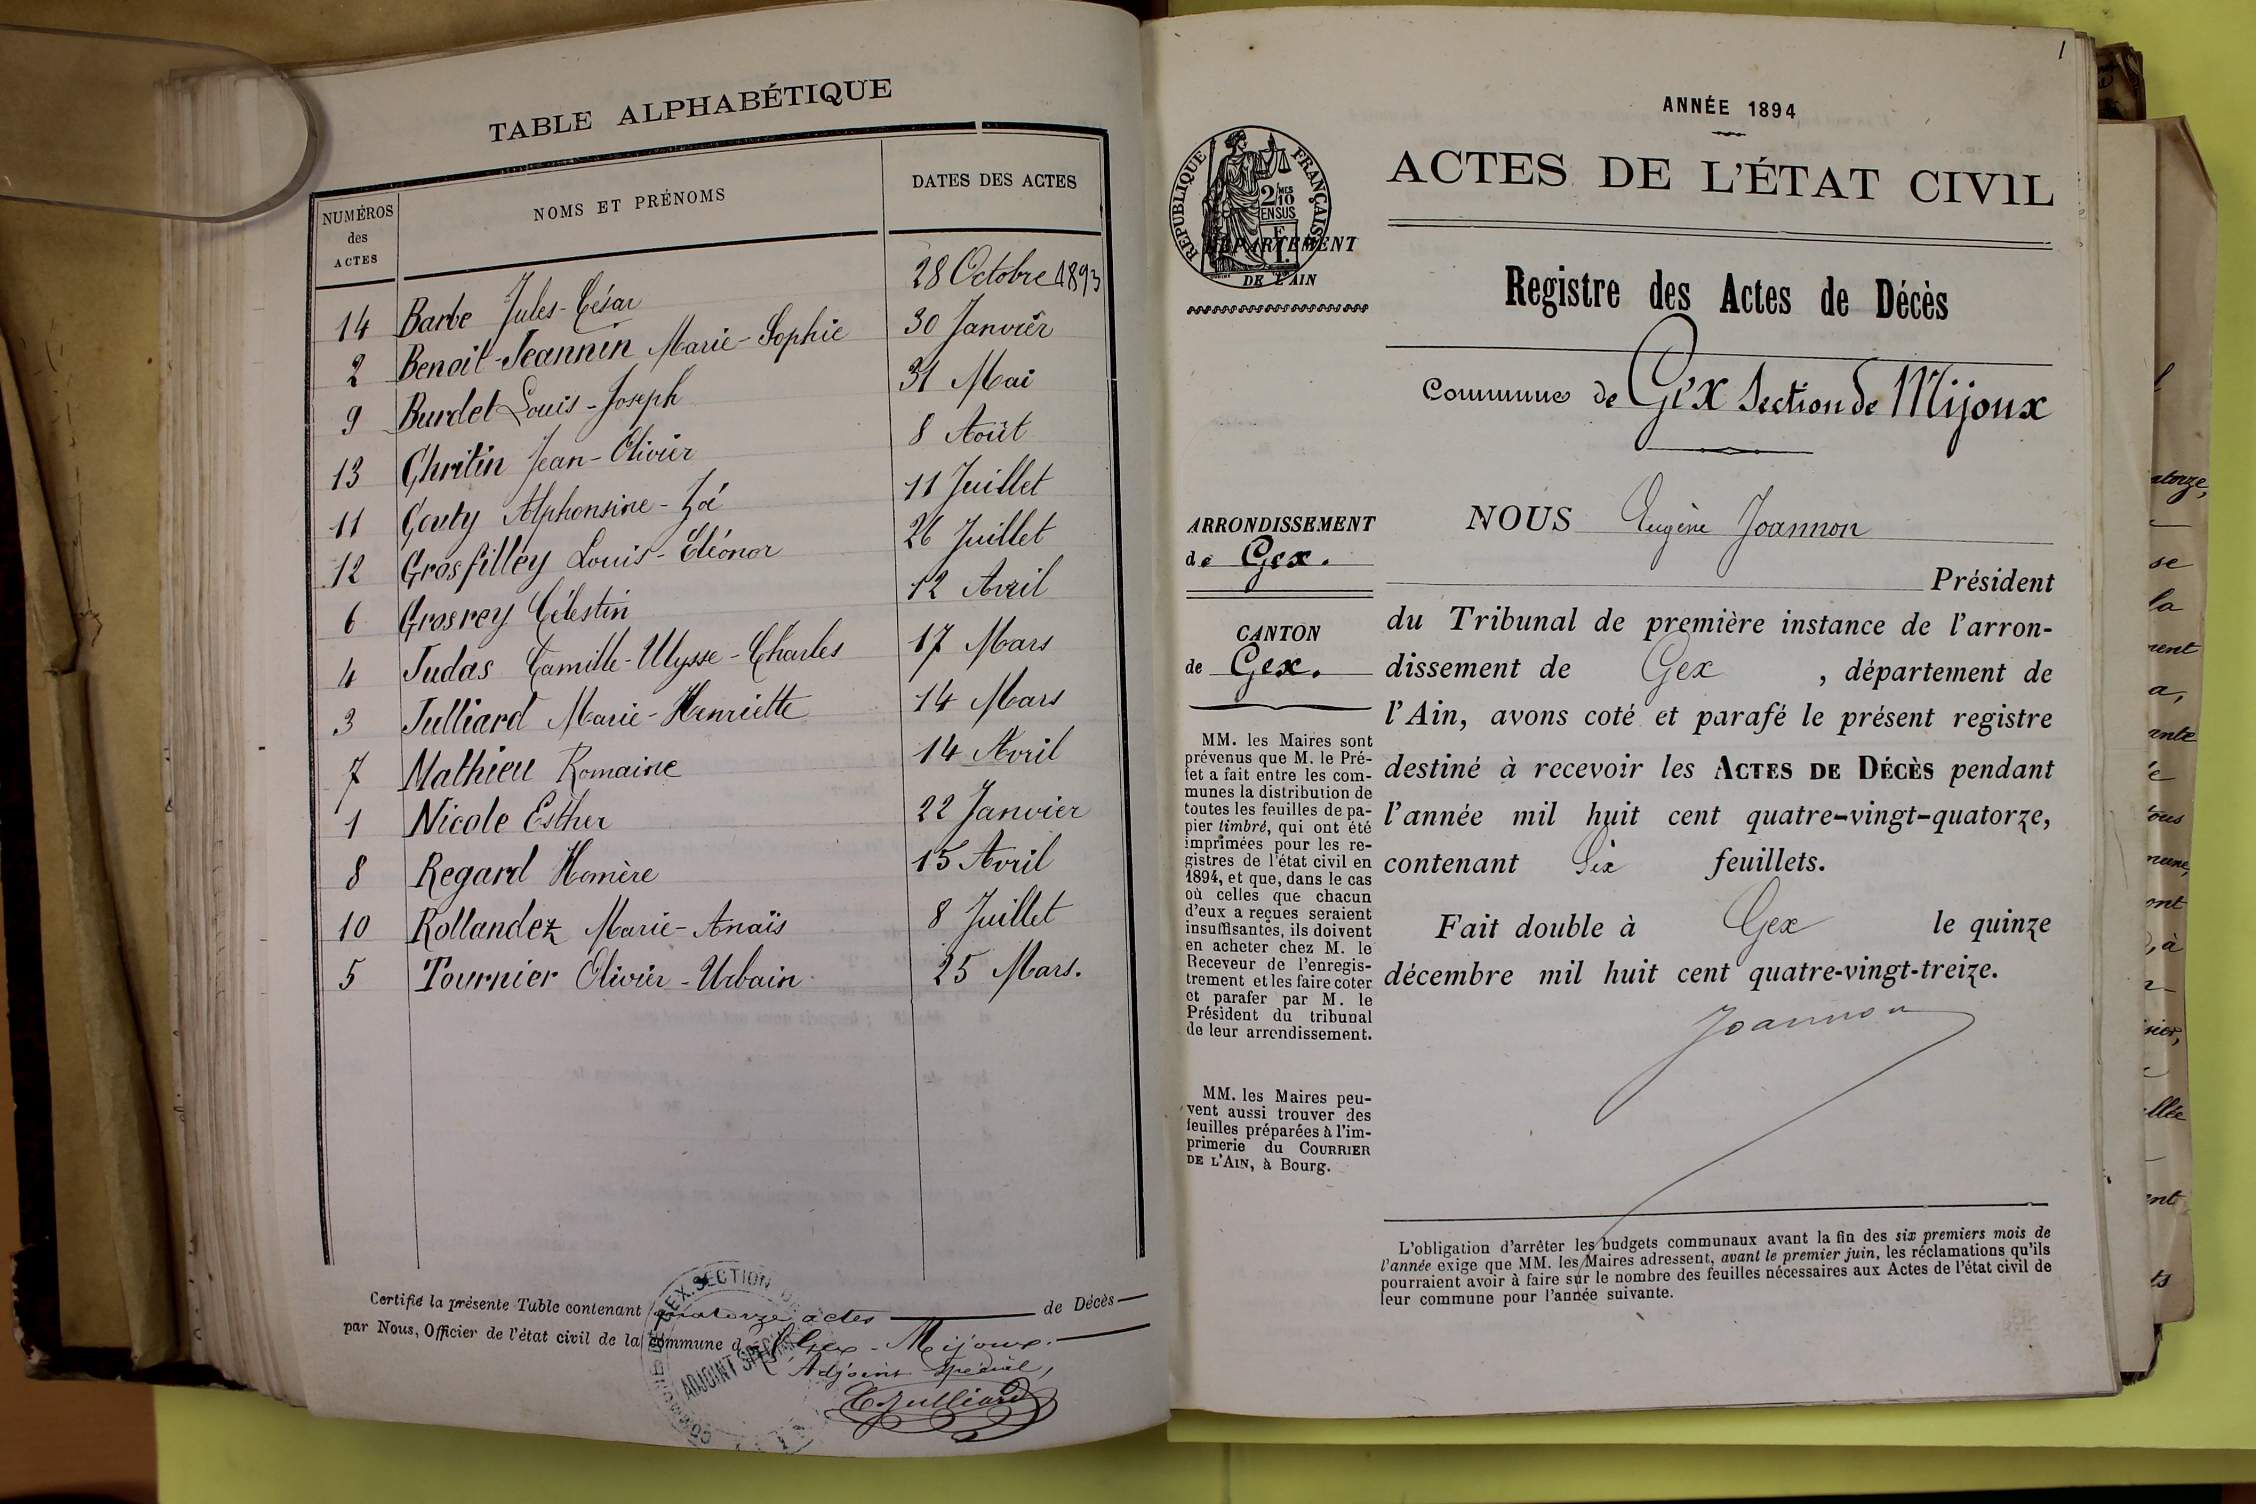 TABLE ALPHABÉTIQUE
NUMÉROS des ACTES NOMS ET PRÉNOMS DATES DES ACTES
14 Barbe Jules-César 28 Octobre 1893
2 Benoit-Jeannin Marie-Sophie 30 Janvier
9 Burdet Louis-Joseph 31 Mai
13 Chritin Jean-Olivier 8 Août
11 Gouty Alphonsine-Zoé 11 Juillet
12 Grosfilley Louis-Eléonor 26 Juillet
6 Grosrey Célestin 12 Avril
4 Judas Camille-Ulysse-Charles 17 Mars
3 Julliard Marie-Henriette 14 Mars
7 Mathieu Romaine 14 Avril
1 Nicole Esther 22 Janvier
8 Regard Homère 15 Avril
10 Rollandez Marie-Anaïs 8 Juillet
5 Tournier Olivier-Urbain 25 Mars.
Certifié la présente Table contenant quatorze actes de Décès
par Nous, Officier de l'état civil de la commune de Gex-Mijoux.
l'Adjoint Spécial,
Julliard
ADJOINT SPÉCIAL
1
ANNÉE 1894
ACTES DE L'ÉTAT CIVIL
RÉPUBLIQUE FRANÇAISE
2/10 MES
EN SUS
DÉPARTEMENT
DE L'AIN
Registre des Actes de Décès
Commune de Gex Section de Mijoux
ARRONDISSEMENT
de Gex.
CANTON
de Gex.
MM. les Maires sont
prévenus que M. le Pré-
fet a fait entre les com-
munes la distribution de
toutes les feuilles de pa-
pier timbré, qui ont été
imprimées pour les re-
gistres de l'état civil en
1894, et que, dans le cas
où celles que chacun
d'eux a reçues seraient
insuffisantes, ils doivent
en acheter chez M. le
Receveur de l'enregis-
trement et les faire coter
et parafer par M. le
Président du tribunal
de leur arrondissement.
MM. les Maires peu-
vent aussi trouver des
feuilles préparées à l'im-
primerie du COURRIER
DE L'AIN, à Bourg.
NOUS Eugène Joannon
Président
du Tribunal de première instance de l'arron-
dissement de Gex, département de
l'Ain, avons coté et parafé le présent registre
destiné à recevoir les ACTES DE DÉCÈS pendant
l'année mil huit cent quatre-vingt-quatorze,
contenant Six feuillets.
Fait double à Gex le quinze
décembre mil huit cent quatre-vingt-treize.
Joannon
L'obligation d'arrêter les budgets communaux avant la fin des six premiers mois de
l'année exige que MM. les Maires adressent, avant le premier juin, les réclamations qu'ils
pourraient avoir à faire sur le nombre des feuilles nécessaires aux Actes de l'état civil de
leur commune pour l'année suivante.